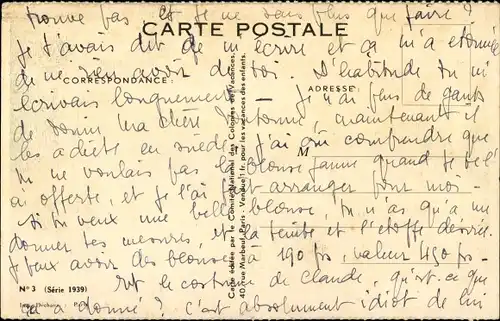 trouve pas et je ne sais plus que faire ?
CARTE POSTALE
Je t'avais dit de m'écrire et ça m'a étonnée
de ne rien avoir de toi. D'habitude tu m'
CORRESPONDANCE :
ADRESSE :
écrivais longuement — Je n'ai plus de gants
de maintenant il
les en suède. J'ai cru comprendre que
M
tu ne voulais pas la blouse jaune quand je te l'
ai offerte, et je l'ai fait arranger pour moi.
Si tu veux une belle blouse tu n'as qu'à me
donner tes mesures, et la teinte et l'étoffe désirée.
Je peux avoir des blouses à 190 frs, valeur 450 frs.
Et le costume de Claude, qu'est-ce que
ça a donné ? C'est absolument idiot de lui
Nº 3 (Série 1939)
Carte éditée par le Comité National des Colonies de Vacances,
40 rue Marbeuf, Paris - Vendue 1 fr. pour les vacances des enfants.